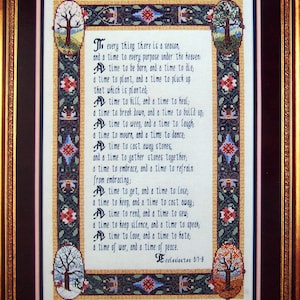 To every thing there is a season,
and a time to every purpose under the heaven:
A time to be born, and a time to die;
a time to plant, and a time to pluck up
that which is planted;
A time to kill, and a time to heal;
a time to break down, and a time to build up;
A time to weep, and a time to laugh;
a time to mourn, and a time to dance;
A time to cast away stones,
and a time to gather stones together;
a time to embrace, and a time to refrain
from embracing;
A time to get, and a time to lose;
a time to keep, and a time to cast away;
A time to rend, and a time to sew;
a time to keep silence, and a time to speak;
A time to love, and a time to hate;
a time of war, and a time of peace.
Ecclesiastes 3:1-8